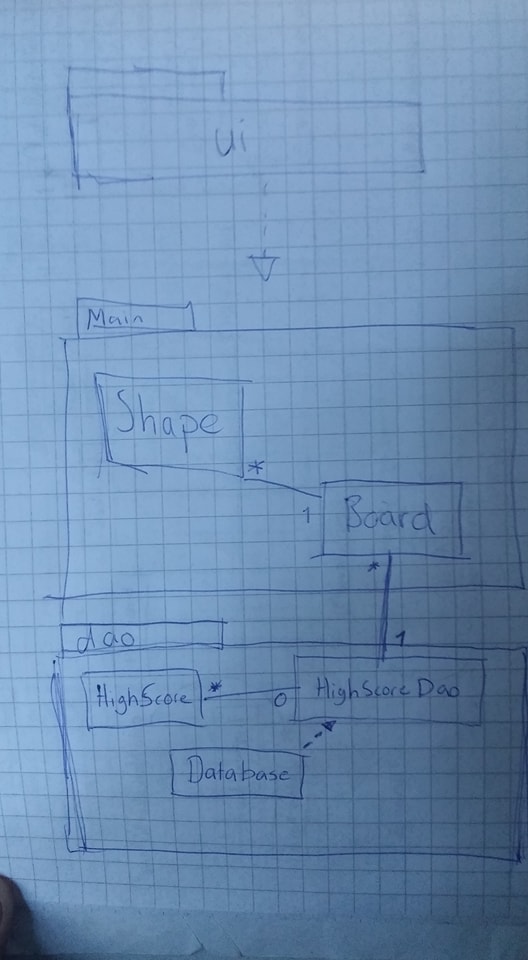 ui
Main
Shape
*
1
Board
*
1
dao
HighScore
*
0
HighScore Dao
Database